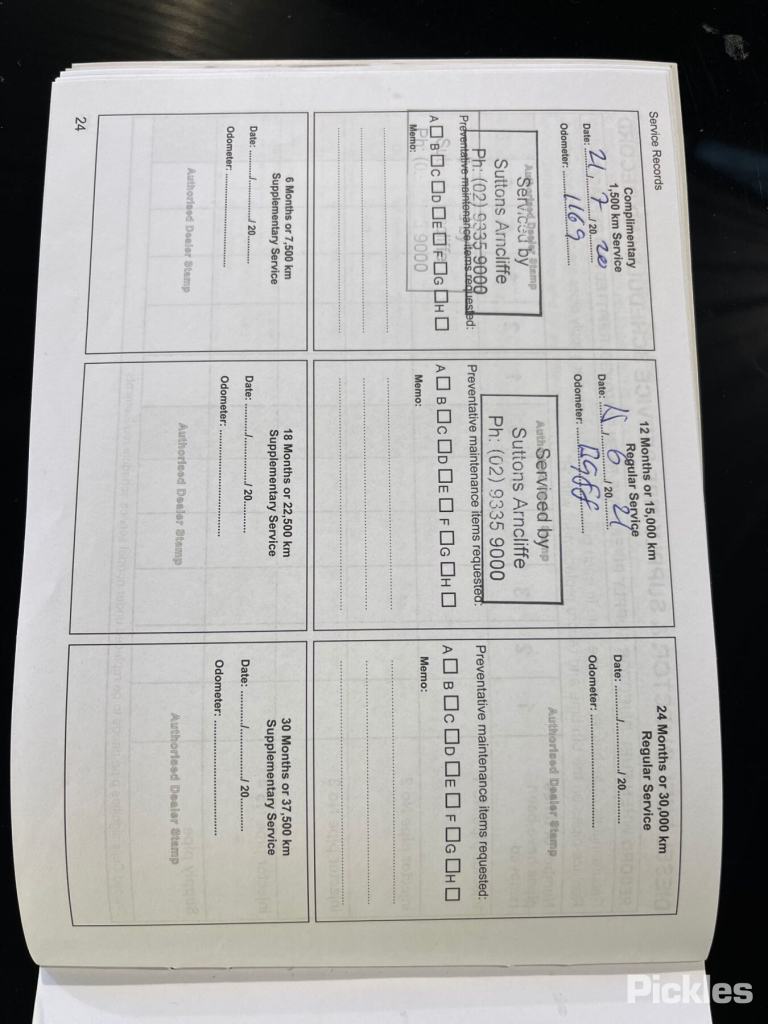 Service Records
Complimentary
1,500 km Service
Date: 21 / 7 / 20 20
Odometer: 1169
Authorised Dealer Stamp
Serviced by
Suttons Arncliffe
Ph: (02) 9335 9000
Preventative maintenance items requested:
A □ B □ C □ D □ E □ F □ G □ H □
Memo:
9000
12 Months or 15,000 km
Regular Service
Date: 15 / 6 / 20 21
Odometer:
Serviced by
Suttons Arncliffe
Ph: (02) 9335 9000
Preventative maintenance items requested:
A □ B □ C □ D □ E □ F □ G □ H □
Memo:
24 Months or 30,000 km
Regular Service
Date: ........../............../ 20..........
Odometer: ..............................
Authorised Dealer Stamp
Preventative maintenance items requested:
A □ B □ C □ D □ E □ F □ G □ H □
Memo:
6 Months or 7,500 km
Supplementary Service
Date: ........../............../ 20..........
Odometer: ..............................
Authorised Dealer Stamp
18 Months or 22,500 km
Supplementary Service
Date: ........../............../ 20..........
Odometer: ..............................
Authorised Dealer Stamp
30 Months or 37,500 km
Supplementary Service
Date: ........../............../ 20..........
Odometer: ..............................
Authorised Dealer Stamp
24
Pickles